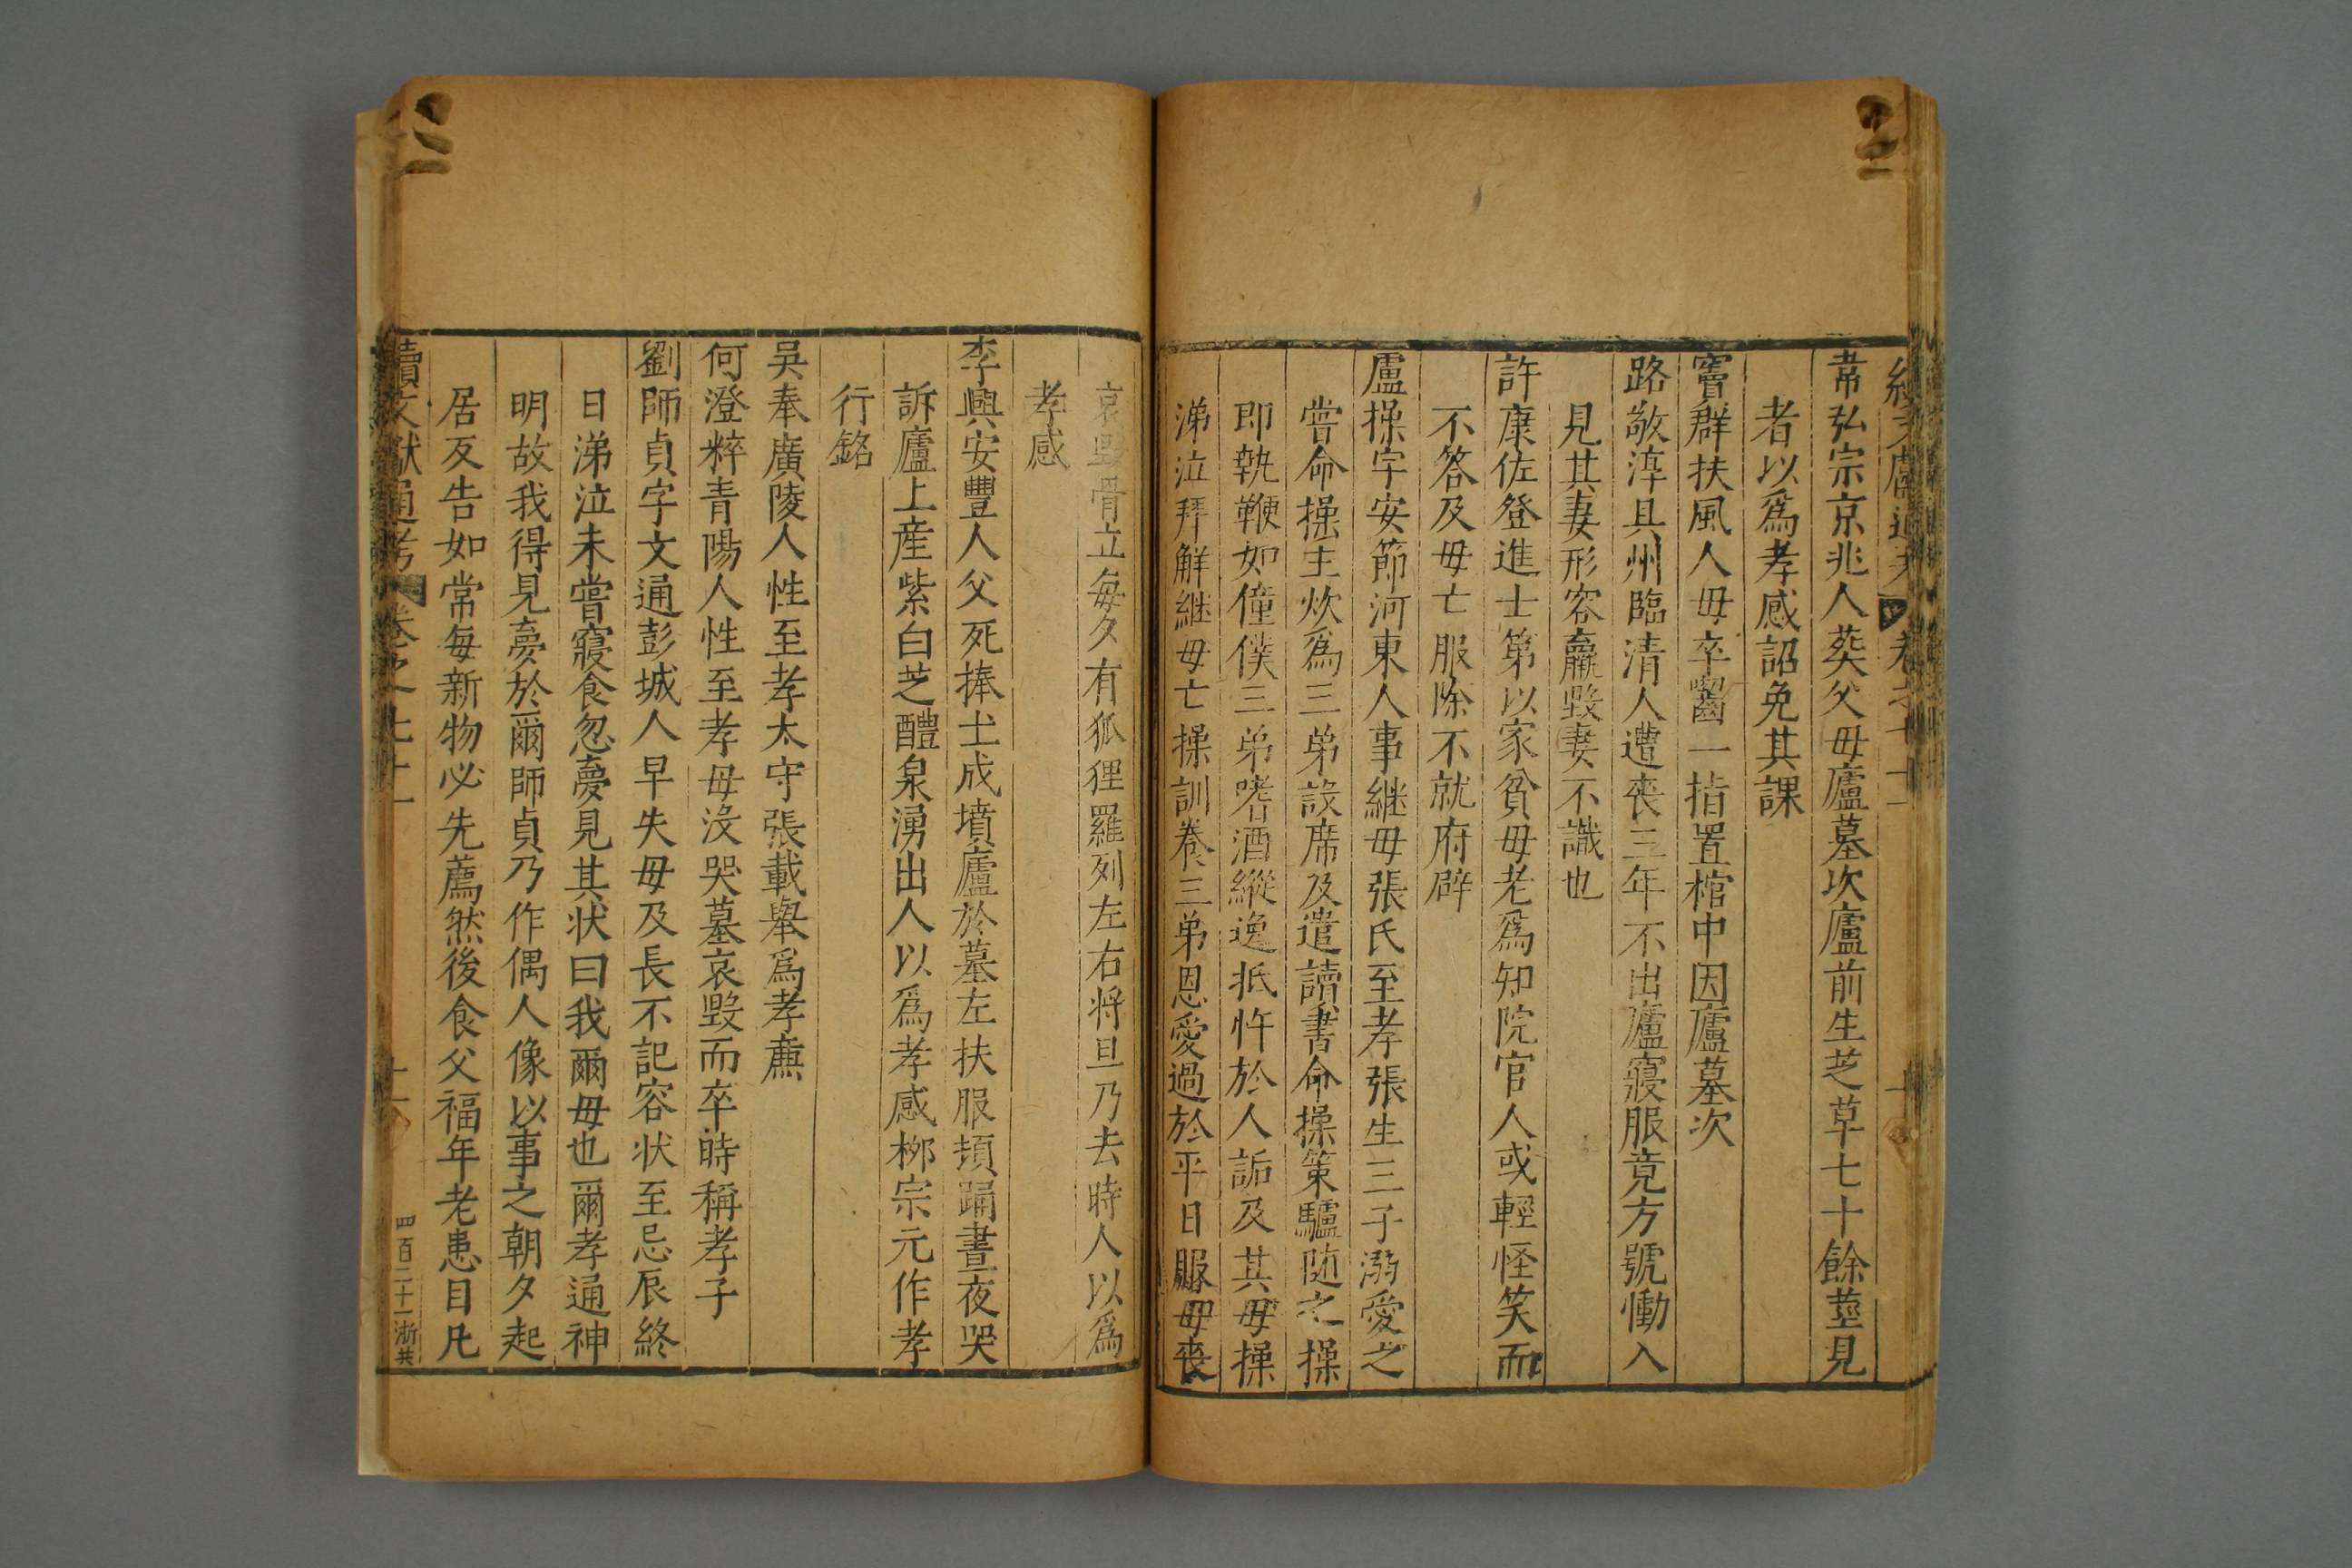 常弘宗京兆人葬父毋廬墓次廬前生芝草七十餘莖見
者以爲孝感詔免其課
竇群扶風人毋卒齧一指置棺中因廬墓次
路敬淳具州臨清人遭喪三年不出廬寢服竟方號慟入
見其妻形容羸毀妻不識也
許康佐登進士第以家貧毋老爲知院官人或輕怪笑而
不答及毋亡服除不就府辟
盧操字安節河東人事継毋張氏至孝張生三子溺愛之
嘗命操主炊爲三弟設席及遣讀書命操策驢随之操
即執鞭如僮僕三弟嗜酒縱逸抵忤於人詬及其毋操
涕泣拜解継毋亡操訓養三弟恩愛過於平日服毋喪
哀毀骨立每夕有狐狸羅列左右将旦乃去時人以爲
孝感
李興安豐人父死捧土成墳廬於墓左扶服頓踊晝夜哭
訴廬上産紫白芝醴泉湧出人以爲孝感柳宗元作孝
行銘
吳奉廣陵人性至孝太守張載舉爲孝亷
何澄粹青陽人性至孝毋没哭墓哀毀而卒時稱孝子
劉師貞字文通彭城人早失毋及長不記容状至忌辰終
日涕泣未嘗寢食忽夣見其状曰我爾毋也爾孝通神
明故我得見夣於爾師貞乃作偶人像以事之朝夕起
居反告如常每新物必先薦然後食父福年老患目凡
續文獻通考 卷之七十一 十一 四百二十一 浙共